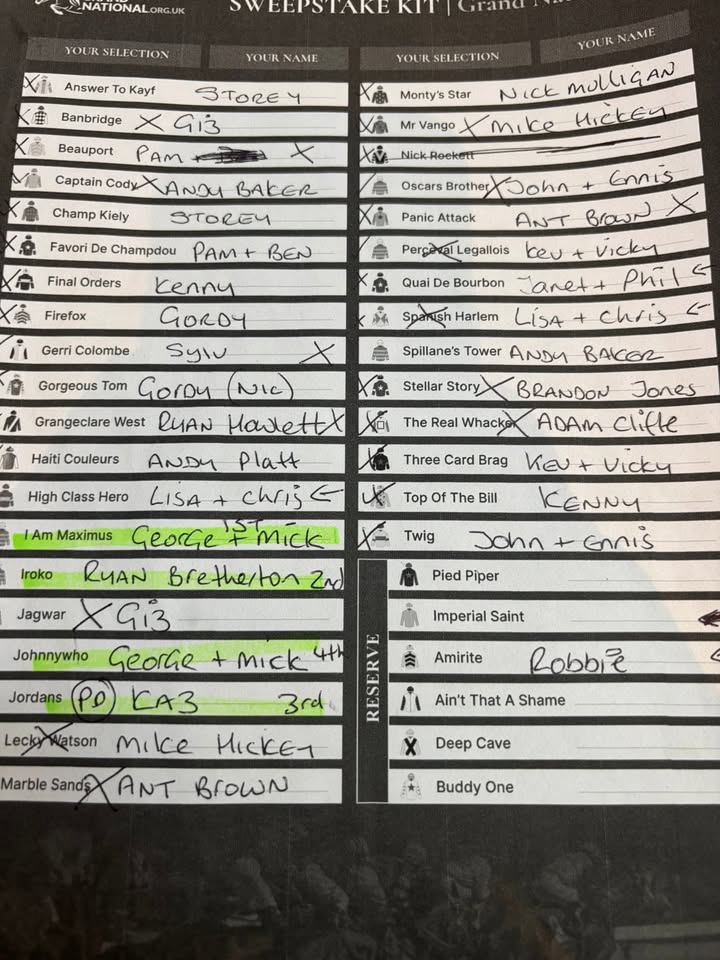 NATIONAL.ORG.UK
SWEEPSTAKE KIT | Grand
YOUR SELECTION YOUR NAME
Answer To Kayf STOREY
Banbridge X Gi3
Beauport PAM X
Captain Cody X ANDY BAKER
Champ Kiely STOREY
Favori De Champdou PAM + BEN
Final Orders Kenny
Firefox GORDY
Gerri Colombe SYLV X
Gorgeous Tom GORDY (NIC)
Grangeclare West RYAN Howlett X
Haiti Couleurs ANDY Platt
High Class Hero LISA + chris ←
I Am Maximus George + mick 1ST
Iroko RYAN Bretherton 2nd
Jagwar X Gi3
Johnnywho George + mick 4th
Jordans PD KA3 3rd
Lecky Watson MIKE HICKEY
Marble Sands X ANT BROWN
YOUR SELECTION YOUR NAME
Monty's Star NICK MULLIGAN
Mr Vango X MIKE HICKEY
Nick Rockett
Oscars Brother X John + Ennis
Panic Attack ANT BROWN X
Perceval Legallois Kev + Vicky
Quai De Bourbon Janet + Phil ←
Spanish Harlem LISA + chris ←
Spillane's Tower ANDY BAKER
Stellar Story X BRANDON Jones
The Real Whacker X ADAM Cliffe
Three Card Brag KEV + Vicky
Top Of The Bill KENNY
Twig John + Ennis
RESERVE
Pied Piper
Imperial Saint
Amirite Robbie
Ain't That A Shame
Deep Cave
Buddy One